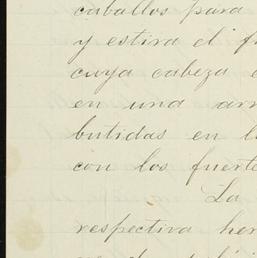 caballos para
y estira el
cuya cabeza
en una
butidas en
con los fuerte
La
respectiva her